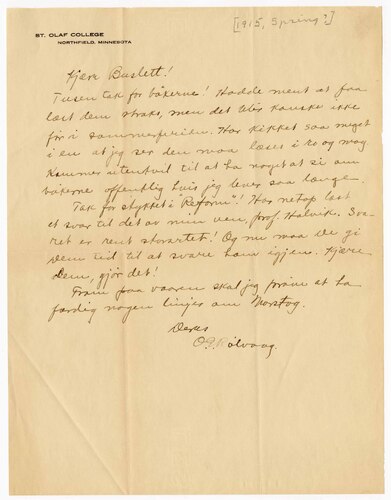 [1915, Spring?]
ST. OLAF COLLEGE
NORTHFIELD, MINNESOTA
Kjære Buslett!
Tusen tak for bøkerne! Hadde ment at faa
læst dem straks, men det blir kanske ikke
før i sommerferien. Har kikket saa meget
i en at jeg ser den maa læses i ro og mag
Kommer utentvil til at ha noget at si om
bøkerne offentlig hvis jeg lever saa længe.
Tak for stykket i "Reform"! Har netop læst
et svar til det av min ven, prof. Halvik. Sva-
ret er rent storartet! Og nu maa De gi
Dem tid til at svare ham igjen. Kjære
Dem, gjør det!
Fram paa vaaren skal jeg prøve at ha
færdig nogen linjer om Norstog.
Deres
O. E. Rølvaag